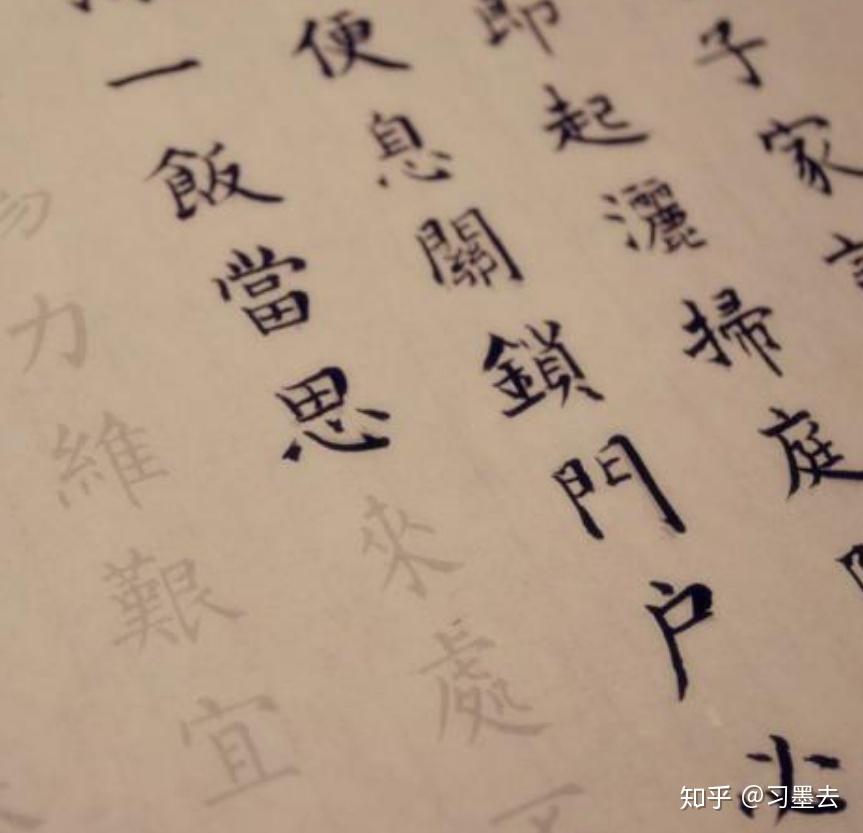 子家
起灑掃庭
便息關鎖門户必
一飯當思來處
力維艱宜
知乎 @习墨去